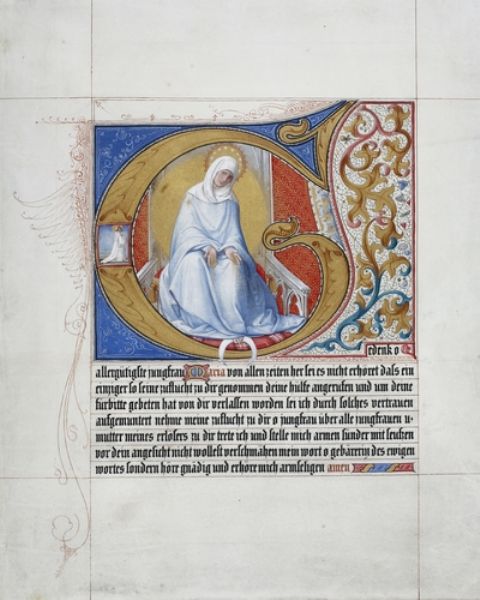 Gedenk o
allergütigste jungfrau Maria von allen zeiten her sei es nicht erhöret daſs ein
einziger so seine zuflucht zu dir genommen deine hilfe angerufen und um deine
fürbitte gebeten hat von dir verlassen worden sei ich durch solches vertrauen
aufgemuntert nehme meine zuflucht zu dir o jungfrau über alle jungfrauen u
mutter meines erlösers zu dir trete ich und stelle mich armen sünder mit seufzen
vor dein angesicht nicht wollest verschmähen mein wort o gebärerin des ewigen
wortes sondern höre gnädig und erhöre mich armseligen amen